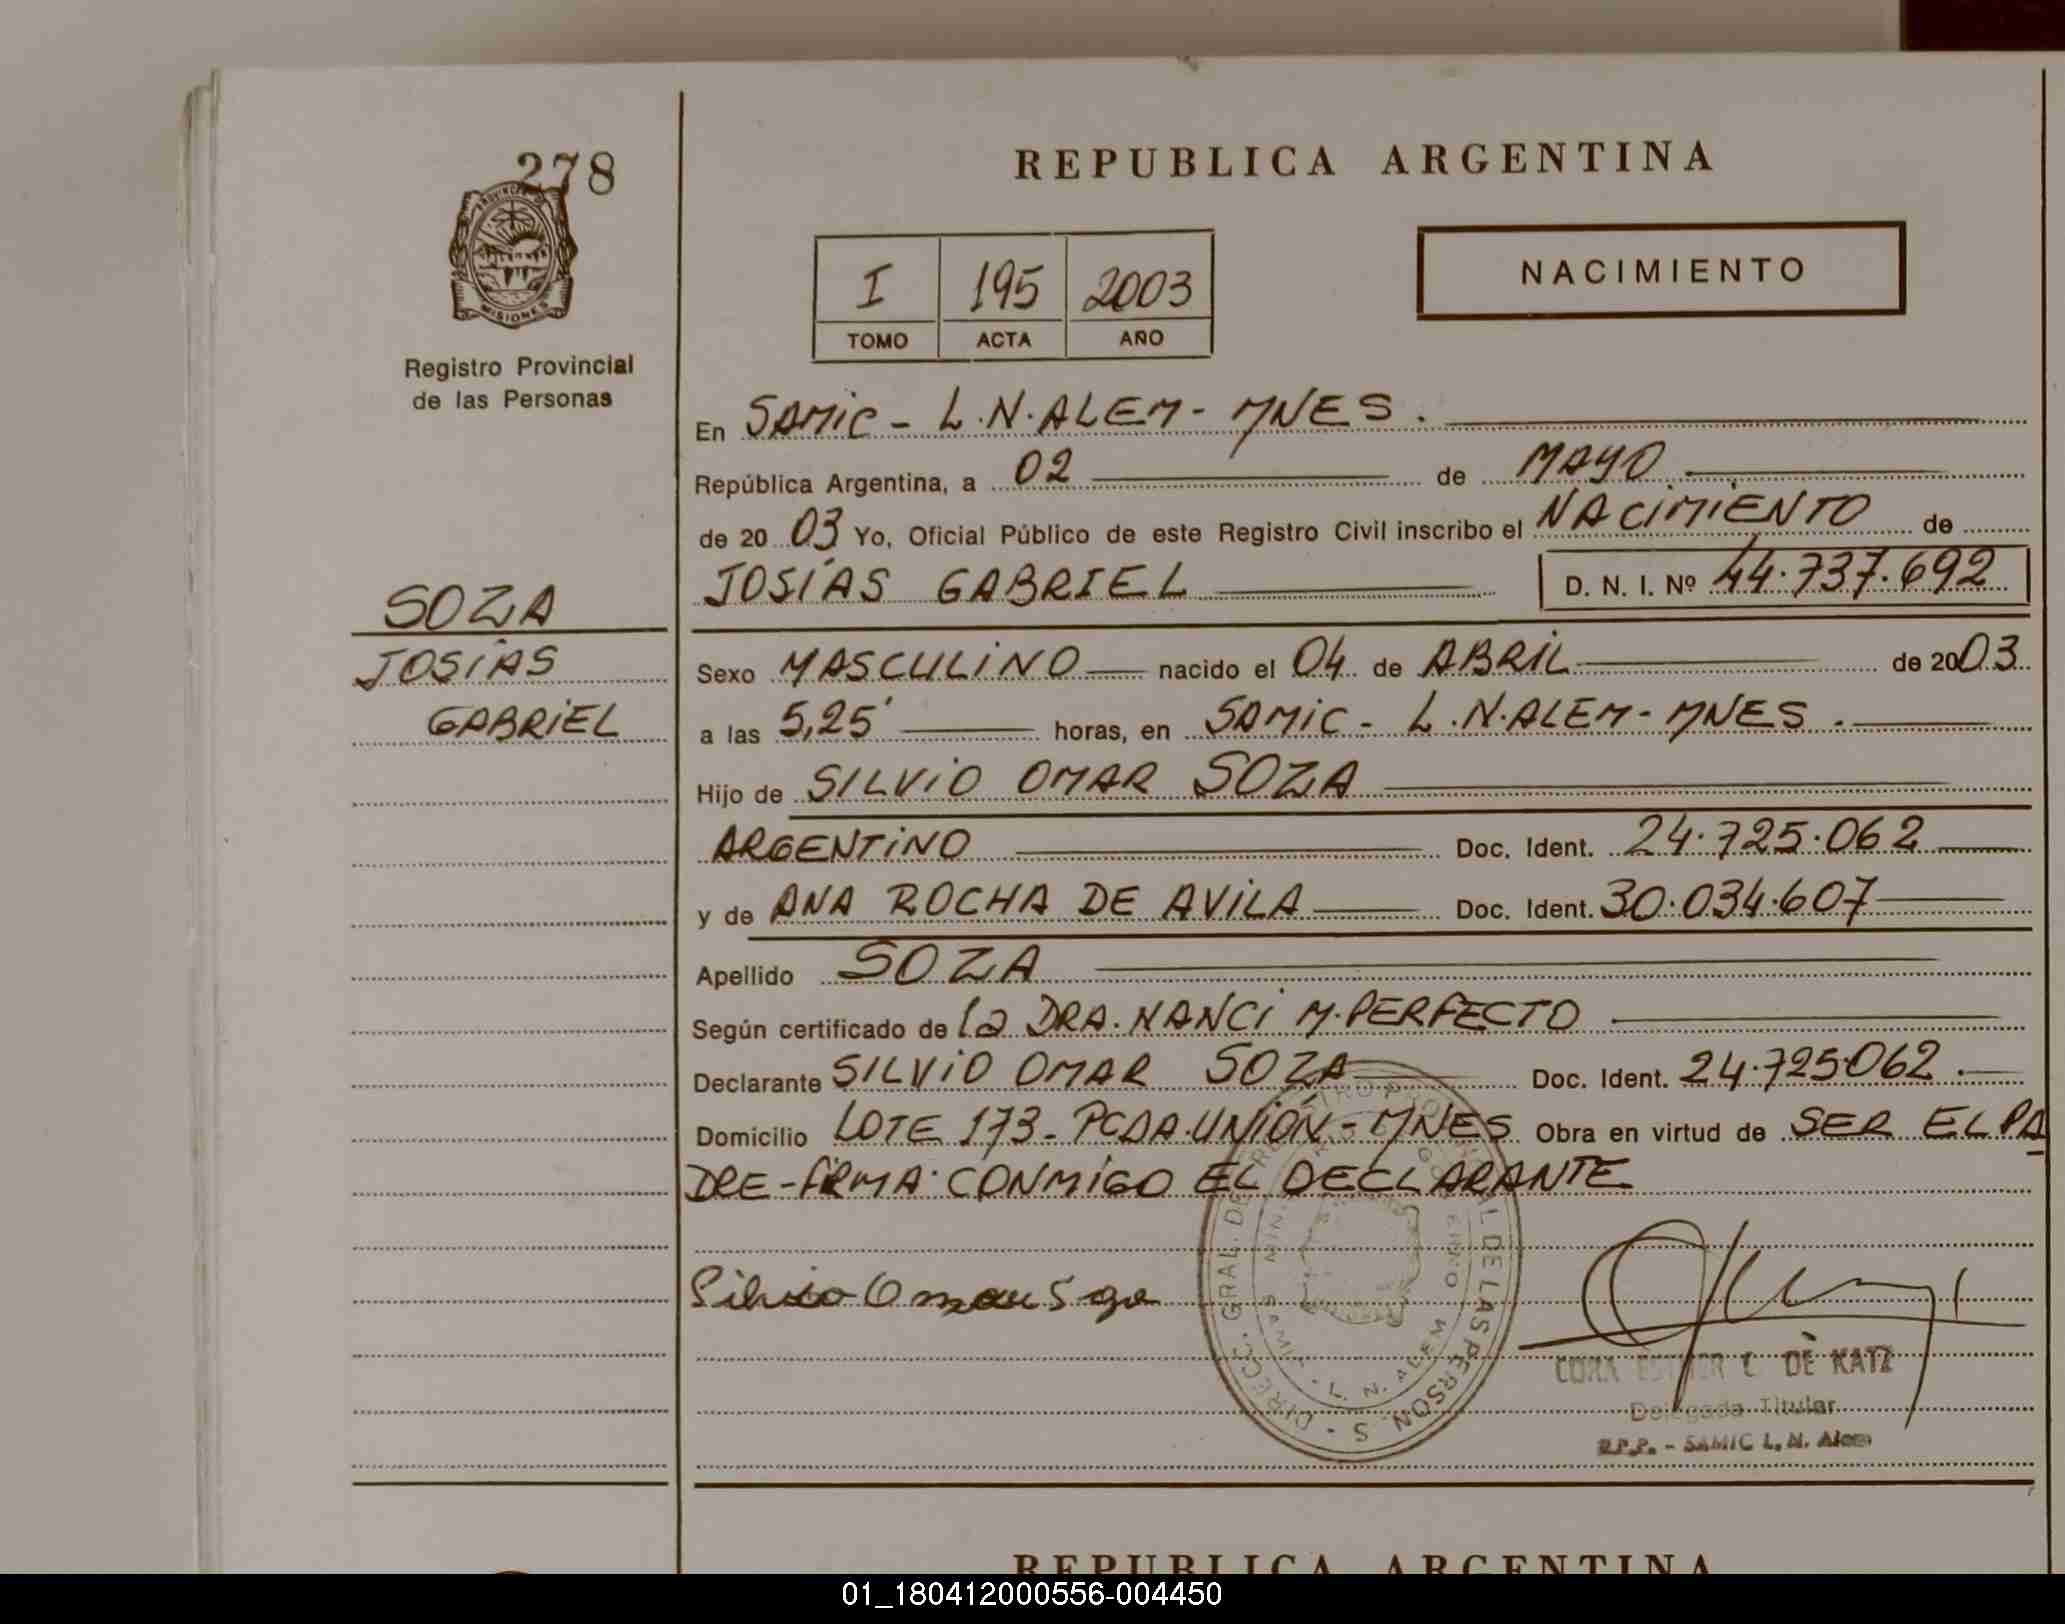 278
PROVINCIA DE
MISIONES
Registro Provincial
de las Personas
SOZA
JOSÍAS
GABRIEL
REPUBLICA ARGENTINA
I 195 2003
TOMO ACTA AÑO
NACIMIENTO
En SAMIC - L.N.ALEM - MNES.
República Argentina, a 02 de MAYO
de 20 03 Yo, Oficial Público de este Registro Civil inscribo el NACIMIENTO de
JOSÍAS GABRIEL D. N. I. Nº 44.737.692
Sexo MASCULINO nacido el 04 de ABRIL de 2003
a las 5,25' horas, en SAMIC - L.N.ALEM - MNES.
Hijo de SILVIO OMAR SOZA
ARGENTINO Doc. Ident. 24.725.062
y de ANA ROCHA DE AVILA Doc. Ident. 30.034.607
Apellido SOZA
Según certificado de la DRA. NANCI M. PERFECTO
Declarante SILVIO OMAR SOZA Doc. Ident. 24.725062.
Domicilio LOTE 173 - PCDA. UNIÓN - MNES Obra en virtud de SER EL PA
DRE - FIRMA CONMIGO EL DECLARANTE
Silvio Omar Soza
DIRECC. GRAL. DE DE LAS PERSON S
L. N. ALEM
DE KATZ
Delegada Titular
R.P.P. - SAMIC L. N. Alem
REPUBLICA ARGENTINA
01_180412000556-004450